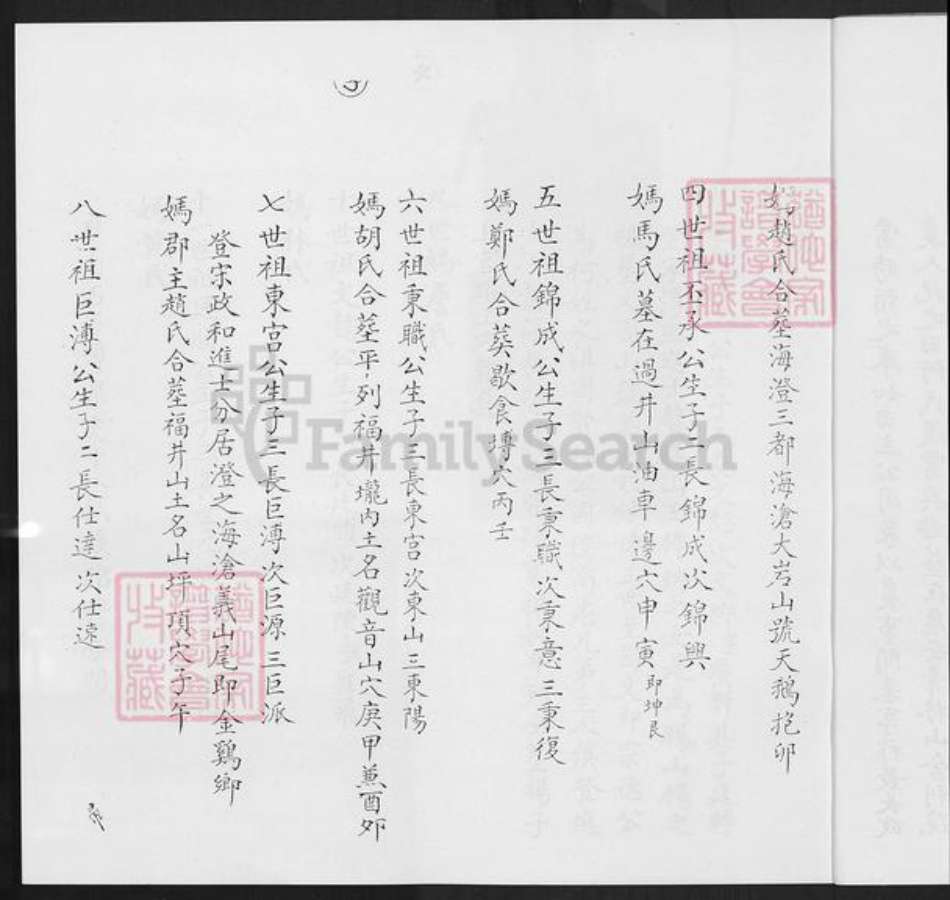 媽趙氏合塟海澄三都海滄大岩山號天鵝抱卵
四世祖丕承公生子二長錦成次錦興
媽馬氏墓在過井山油車邊穴申寅即坤艮
五世祖錦成公生子三長秉職次秉意三秉復
媽鄭氏合葬歇食塼穴丙壬
六世祖秉職公生子三長東宮次東山三東陽
媽胡氏合塟平列福井壠內土名觀音山穴庚甲兼酉卯
七世祖東宮公生子三長巨溥次巨源三巨派
登宋政和進士分居澄之海滄義山尾即金鷄鄉
媽郡主趙氏合塟福井山土名山坪項穴子午
八世祖巨溥公生子二長仕達次仕速
FamilySearch